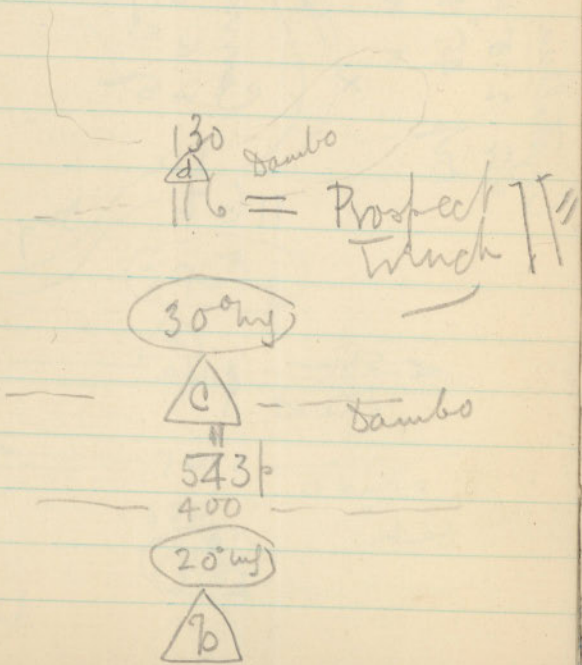 130
d Dambo
116 = Prospect
Trench
30° mg
C Dambo
543 p
400
20° mg
b